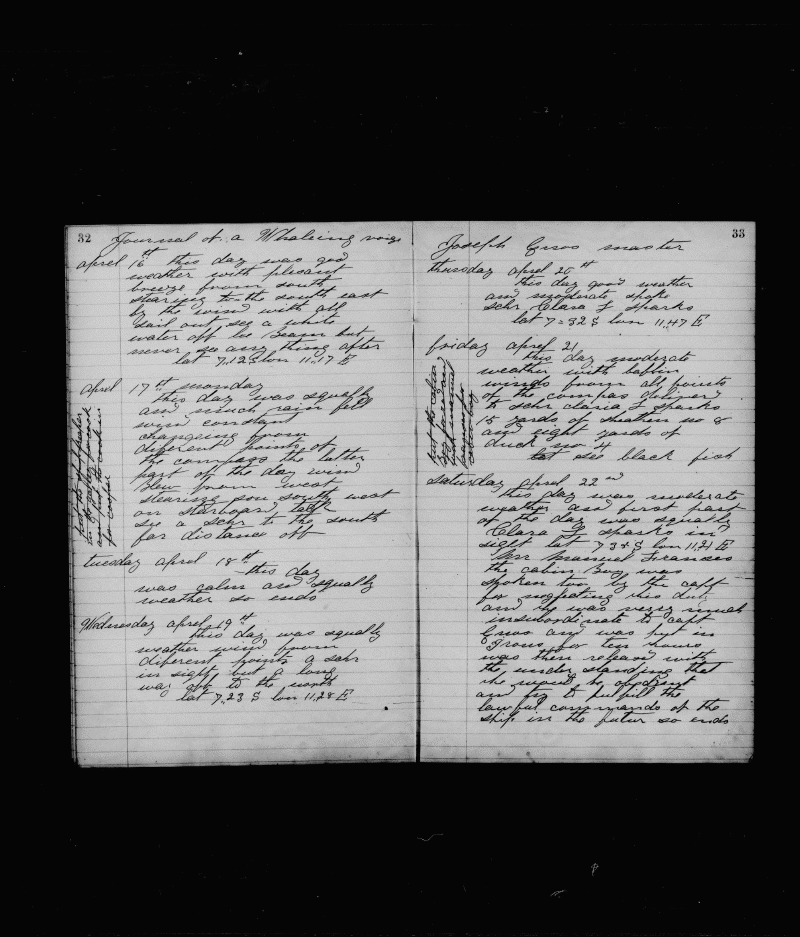 32 Journal of a Whaleing voige
aprel 16th this day was good
weather with plesant
breeze from south
stearing to the south east
by the wind with all
sail out see a white
water off lee Beam but
never see any thing after
lat 7,12 S lon 11,17 E
april 17th monday
this day was squally
and much rain fell
wind constant
changeing from
diferent points of
the compass the latter
part of the day wind
blew from west
stearing sou south west
on starboard tack
see a schr to the south
far distance off
in the galley for cook
for cooper
tuesday april 18th
this day
was calm and squally
weather so ends
Wednesday april 19th
this day was squally
weather wind from
diferent points a schr
in sight but a long
way off to the north
lat 7,23 S lon 11,28 E
33
Joseph Enos master
thursday april 20th
this day good weather
and moderate spoke
schr Clara L Sparks
lat 7=32 S lon 11,47 E
friday aprel 21
this day moderate
weather with baflin
winds from all points
of the compas
to schr claria L sparks
15 yards of no 8
and eight yards of
duck no 4
see black fish
saturday april 22nd
this day was moderate
weather and first part
of the day was squally
Clara L sparks in
sight lat 7 34 S lon 11,21 E
Mr Manuel Francis
the cabin Boy was
spoken too by the capt
for neglecting his duty
and he was very much
insubordinate to capt
Enos and was put in
Irons for ten hours
was then releasd with
the under standing that
he
and try to fulfill the
lawful commands of the
ship in the futur so ends